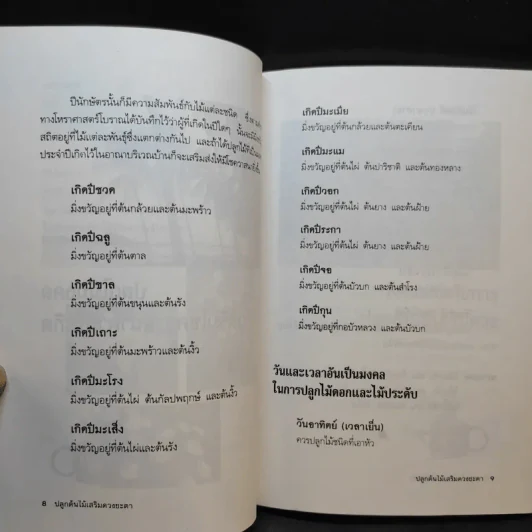 ปีนักษัตรนั้นก็มีความสัมพันธ์กับไม้แต่ละชนิด ซึ่ง
ทางโหราศาสตร์โบราณได้บันทึกไว้ว่าผู้ที่เกิดในปีใดๆ นั้นจะมีมิ่ง
สถิตอยู่ที่ไม้แต่ละพันธุ์ซึ่งแตกต่างกันไป และถ้าได้ปลูกไม้
ประจำปีเกิดไว้ในอาณาบริเวณบ้านก็จะเสริมส่งให้มีโชควาสนา
เกิดปีชวด
มิ่งขวัญอยู่ที่ต้นกล้วยและต้นมะพร้าว
เกิดปีฉลู
มิ่งขวัญอยู่ที่ต้นตาล
เกิดปีขาล
มิ่งขวัญอยู่ที่ต้นขนุนและต้นรัง
เกิดปีเถาะ
มิ่งขวัญอยู่ที่ต้นมะพร้าวและต้นงิ้ว
เกิดปีมะโรง
มิ่งขวัญอยู่ที่ต้นไผ่ ต้นกัลปพฤกษ์ และต้นงิ้ว
เกิดปีมะเส็ง
มิ่งขวัญอยู่ที่ต้นไผ่และต้นรัง
8 ปลูกต้นไม้เสริมดวงชะตา
เกิดปีมะเมีย
มิ่งขวัญอยู่ที่ต้นกล้วยและต้นตะเคียน
เกิดปีมะแม
มิ่งขวัญอยู่ที่ต้นไผ่ ต้นปาริชาติ และต้นทองหลาง
เกิดปีวอก
มิ่งขวัญอยู่ที่ต้นไผ่ ต้นยาง และต้นฝ้าย
เกิดปีระกา
มิ่งขวัญอยู่ที่ต้นไผ่ ต้นยาง และต้นฝ้าย
เกิดปีจอ
มิ่งขวัญอยู่ที่ต้นบัวบก และต้นสำโรง
เกิดปีกุน
มิ่งขวัญอยู่ที่กอบัวหลวง และต้นบัวบก
วันและเวลาอันเป็นมงคล
ในการปลูกไม้ดอกและไม้ประดับ
วันอาทิตย์ (เวลาเย็น)
ควรปลูกไม้ชนิดที่เอาหัว
ปลูกต้นไม้เสริมดวงชะตา 9